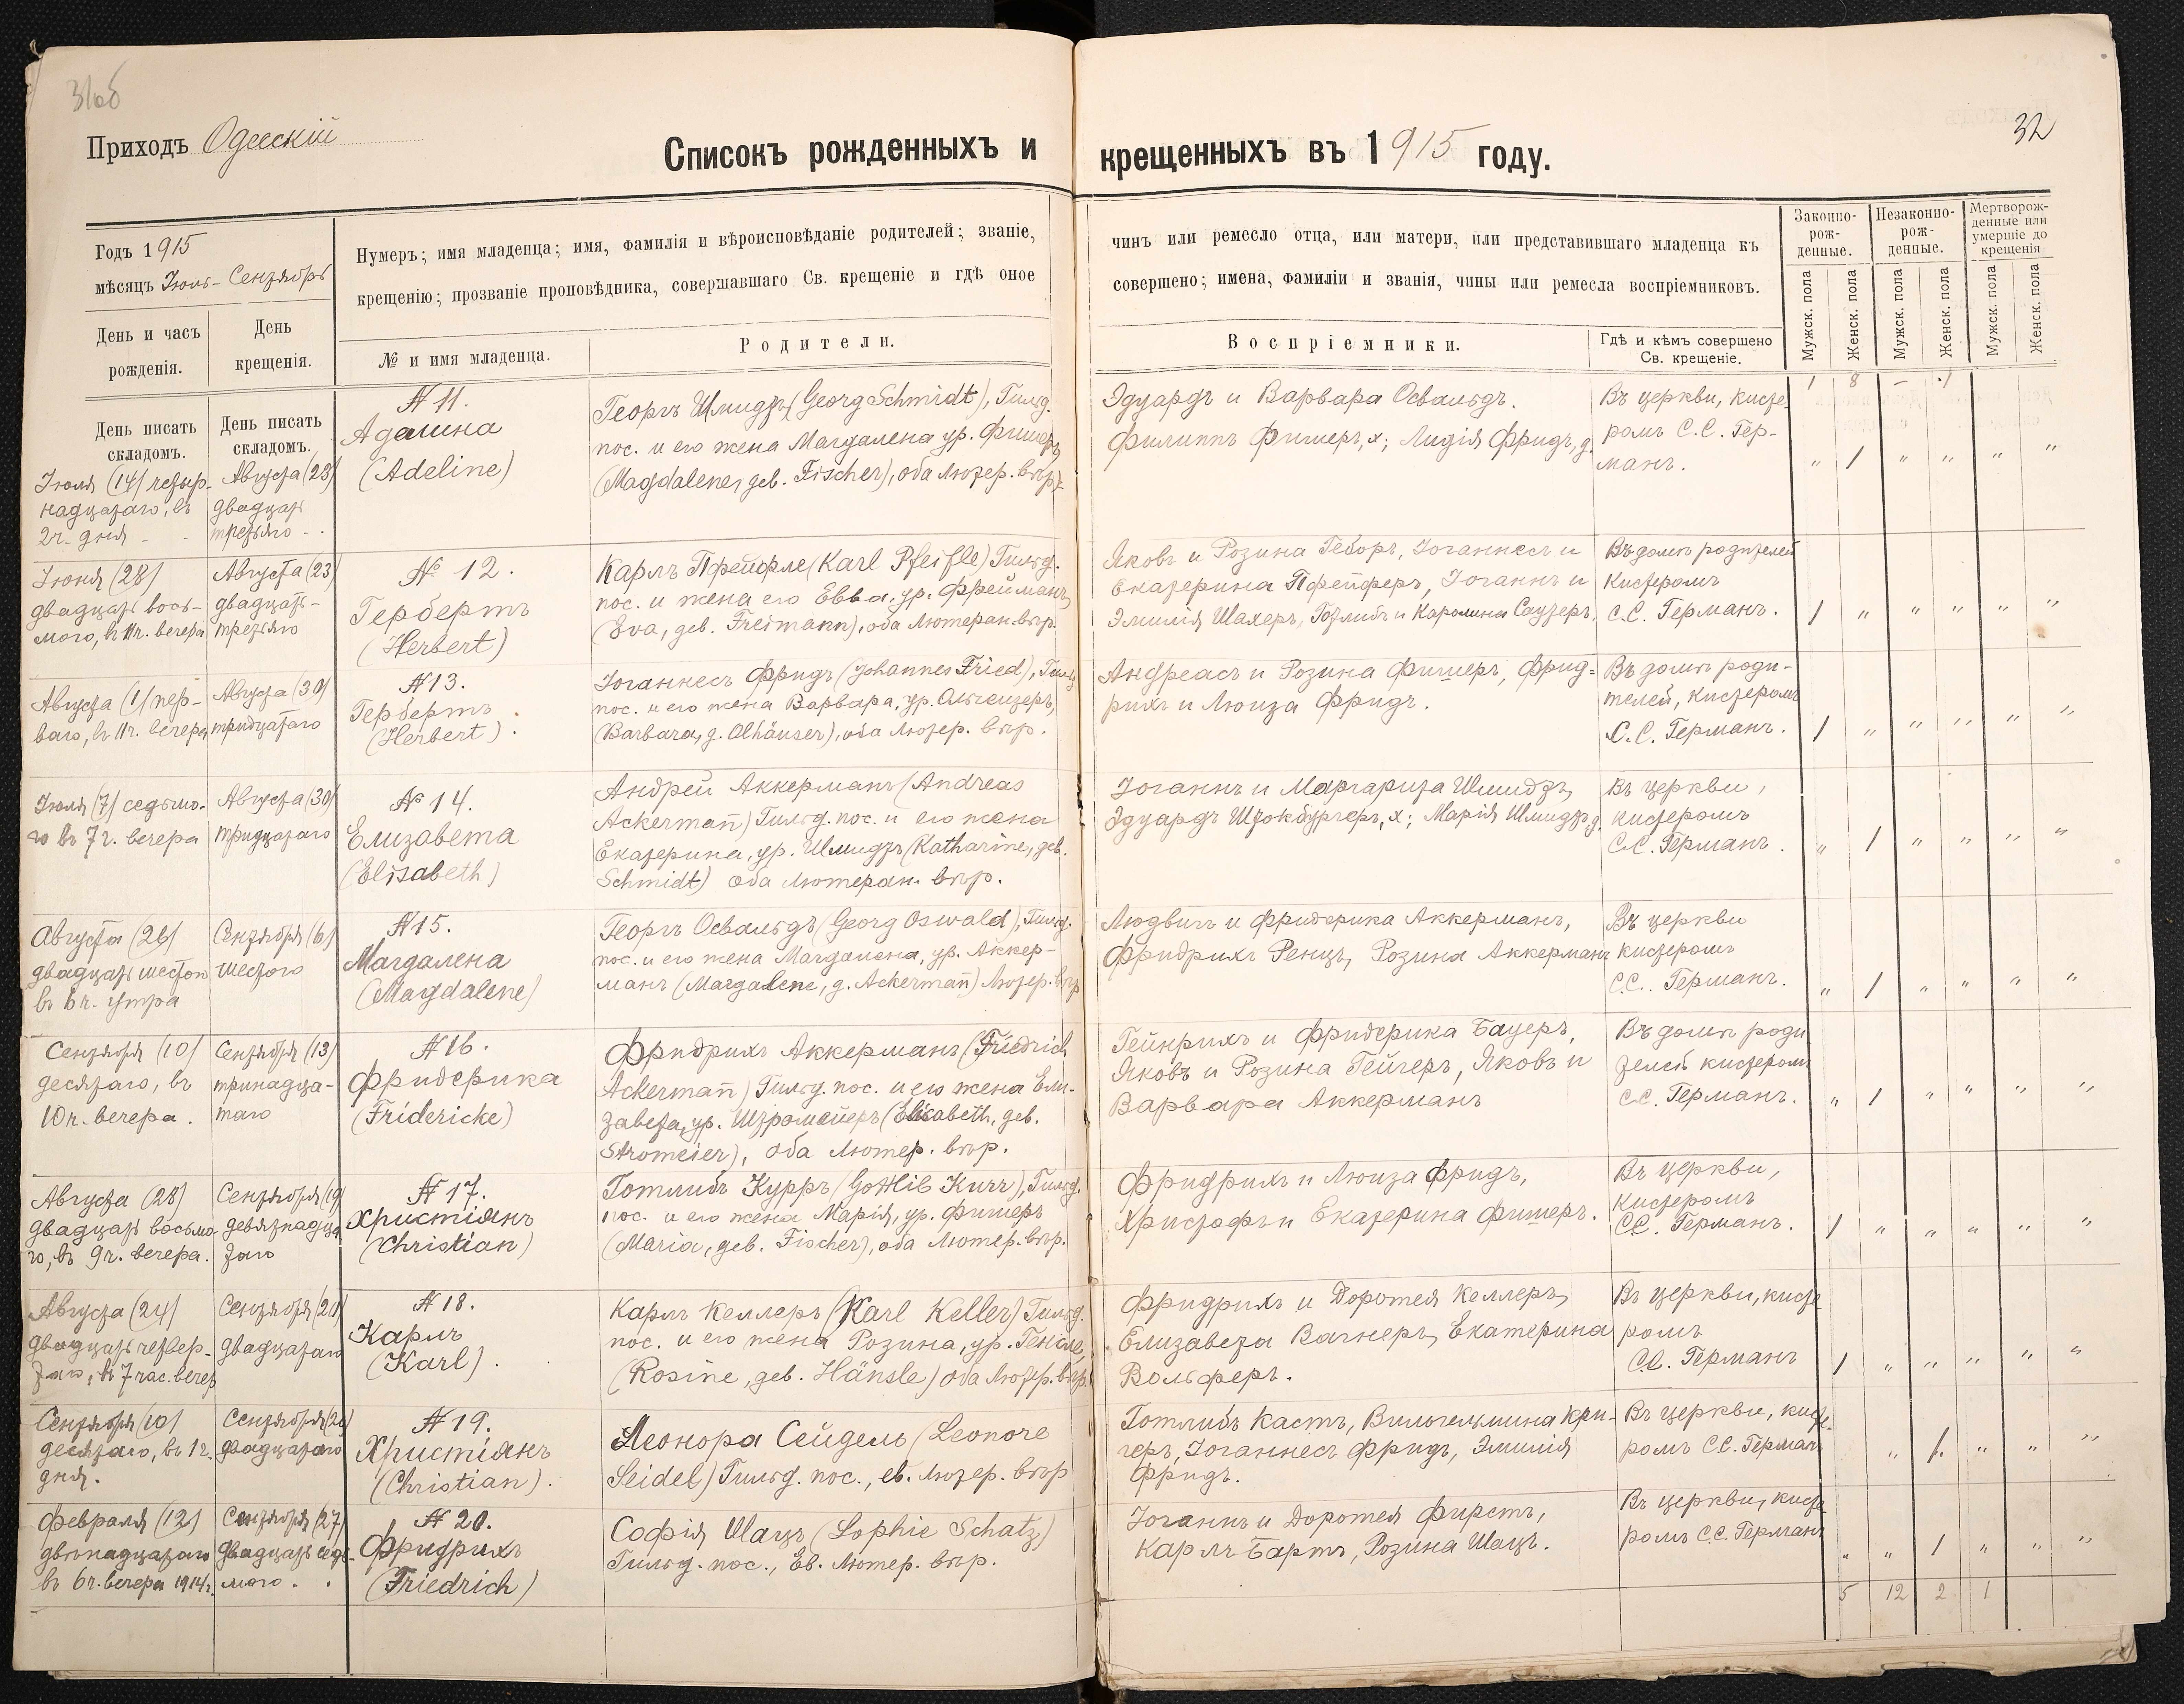 31об
Приходъ Одесскій
Списокъ рожденныхъ и крещенныхъ въ 1915 году.
32
Годъ 1915
мѣсяцъ Іюль - Сентябрь
Нумеръ; имя младенца; имя, фамилія и вѣроисповѣданіе родителей; званіе,
крещенію; прозваніе проповѣдника, совершавшаго Св. крещеніе и гдѣ оное
чинъ или ремесло отца, или матери, или представившаго младенца къ
совершено; имена, фамиліи и званія, чины или ремесла воспріемниковъ.
Законно-
рож-
денные.
Незаконно-
рож-
денные.
Мертворож-
денные или
умершіе до
крещенія
Мужск. пола
Женск. пола
Мужск. пола
Женск. пола
Мужск. пола
Женск. пола
День и часъ
рожденія.
День
крещенія.
№ и имя младенца.
Родители.
Воспріемники.
Гдѣ и кѣмъ совершено
Св. крещеніе.
День писать
складомъ.
День писать
складомъ.
1 8 – 1
Іюля (14) четыр-
надцатаго, въ
2 ч. дня - -
Августа (23)
двадцать
третьяго - .
№ 11.
Адалина
(Adeline)
Георгъ Шмидтъ (Georg Schmidt), Гильд.
пос. и его жена Магдалена ур. Фишеръ
(Magdalene, geb. Fischer), оба Лютер. вѣр.
Эдуардъ и Варвара Освальдъ.
Филиппъ Фишеръ, х; Лидія Фридъ, д.
Въ церкви, кисте-
ромъ С. С. Гер-
манъ.
" 1 " " " "
Іюня (28)
двадцать вось-
мого, въ 11 ч. вечера
Августа (23)
двадцать-
третьяго
№ 12.
Гербертъ
(Herbert)
Карлъ Прейфле (Karl Pfeifle) Гильд.
пос. и жена его Евва, ур. Фрейманъ,
(Eva, geb. Freimann), оба Лютеран. вѣр.
Яковъ и Розина Геборъ, Іоганнесъ и
Екатерина Пфейферъ, Іоганнъ и
Эмилія Шахеръ, Готлибъ и Каролина Саутеръ,
Въ домѣ родителей
кистеромъ
С. С. Германъ.
1 " " " " "
Августа (1) пер-
ваго, въ 11 ч. вечера
Августа (30)
тридцатаго
№ 13.
Гербертъ
(Herbert).
Іоганнесъ Фридъ (Johannes Fried), Гильд.
пос. и его жена Варвара, ур. Ольгейзеръ,
(Barbara, g. Olhäuser), оба Лютер. вѣр.
Андреасъ и Розина Фишеръ, Фрид-
рихъ и Люиза Фридъ.
Въ домѣ роди-
телей, кистеромъ
С. С. Германъ.
1 " " " " "
Іюля (7) седьмо-
го въ 7 ч. вечера
Августа (30)
тридцатаго
№ 14.
Елизавета
(Elisabeth)
Андрей Аккерманъ (Andreas
Ackermañ) Гильд. пос. и его жена
Екатерина, ур. Шмидтъ (Katharine, geb.
Schmidt) оба Лютеран. вѣр.
Іоганнъ и Маргарита Шмидтъ,
Эдуардъ Штокбургеръ, х; Марія Шмидтъ д.
Въ церкви,
кистеромъ
С. С. Германъ.
" 1 " " " "
Августа (26)
двадцать шестого
въ 6 ч. утра
Сентября (6)
шестого
№ 15.
Магдалена
(Magdalene)
Георгъ Освальдъ (Georg Oswald), Гильд.
пос. и его жена Магдалена, ур. Аккер-
манъ (Magdalene, g. Ackermañ) Лютер. вѣр.
Людвигъ и Фридерика Аккерманъ,
Фридрихъ Ренцъ, Розина Аккерманъ
Въ церкви
кистеромъ
С. С. Германъ.
" 1 " " " "
Сентября (10)
десятаго, въ
10 ч. вечера.
Сентября (13)
тринадца-
таго
№ 16.
Фридерика
(Fridericke)
Фридрихъ Аккерманъ (Friedrich
Ackermañ) Гильд. пос. и его жена Ели-
завета, ур. Штромейеръ (Elisabeth, geb.
Stromeier), оба Лютер. вѣр.
Гейнрихъ и Фридерика Бауеръ,
Яковъ и Розина Гейгеръ, Яковъ и
Варвара Аккерманъ
Въ домѣ роди
телей кистеромъ
С. С. Германъ.
" 1 " " " "
Августа (28)
двадцать восьмо-
го, въ 9 ч. вечера.
Сентября (19)
девятнадца-
таго
№ 17.
Христіянъ
(Christian)
Готлибъ Курръ (Gottlib Kurr), Гильд.
пос. и его жена Марія, ур. Фишеръ
(Maria, geb. Fischer), оба Лютер. вѣр.
Фридрихъ и Люиза Фридъ,
Христофъ и Екатерина Фишеръ.
Въ церкви,
кистеромъ
С. С. Германъ.
1 " " " " "
Августа (24)
двадцать четвер-
таго, въ 7 час. вечер
Сентября (20)
двадцатаго
№ 18.
Карлъ
(Karl).
Карлъ Келлеръ (Karl Keller) Гильд.
пос. и его жена Розина, ур. Генсле,
(Rosine, geb. Hänsle) оба Лютер. вѣр.
Фридрихъ и Доротея Келлеръ,
Елизавета Вагнеръ, Екатерина
Вольферъ.
Въ церкви, кисте
ромъ
С. С. Германъ
1 " " " " "
Сентября (10)
десятаго, въ 1 ч.
дня.
Сентября (20)
двадцатаго
№ 19.
Христіянъ
(Christian).
Леонора Сейдель (Leonore
Seidel) Гильд. пос., ев. Лютер. вѣр
Готлибъ Кастъ, Вильгельмина Кри-
геръ, Іоганнесъ Фридъ, Эмилія
Фридъ.
Въ церкви, кисте-
ромъ С. С. Герман
" 1. " " "
Февраля (12)
двѣнадцатаго
въ 6 ч. вечера 1914 г.
Сентября (27)
двадцать седь-
мого.
№ 20.
Фридрихъ
(Friedrich)
Софія Шацъ (Sophie Schatz)
Гильд. пос., Ев. Лютер. вѣр.
Іоганнъ и Доротея Фирстъ,
Карлъ Бартъ, Розина Шацъ.
Въ церкви, кисте
ромъ С. С. Германъ
" " 1 " " "
5 12 2 1